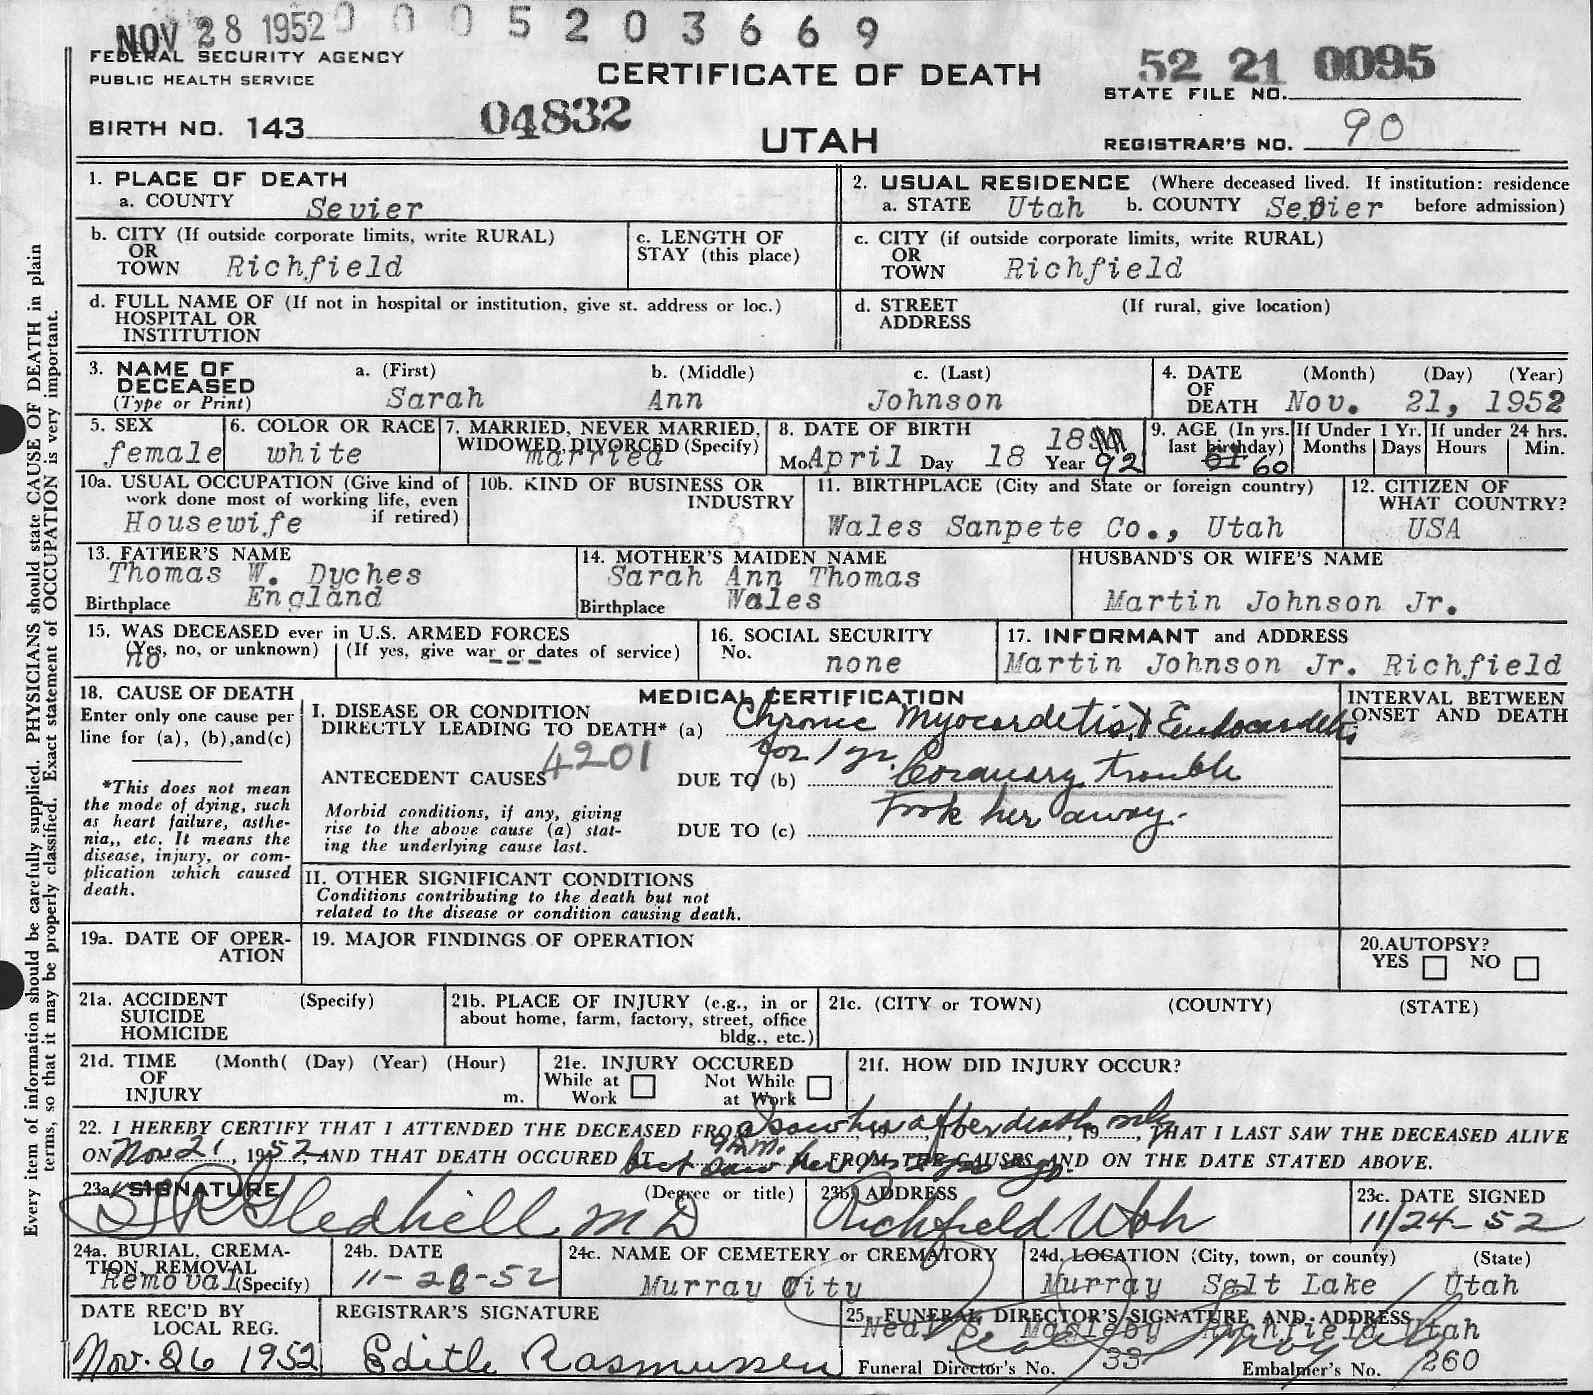 NOV 28 1952 0 0 0 5 2 0 3 6 6 9
FEDERAL SECURITY AGENCY
PUBLIC HEALTH SERVICE
CERTIFICATE OF DEATH
52 21 0095
STATE FILE NO.
BIRTH NO. 143 04832
UTAH
REGISTRAR'S NO. 90
1. PLACE OF DEATH
a. COUNTY Sevier
2. USUAL RESIDENCE (Where deceased lived. If institution: residence before admission)
a. STATE Utah b. COUNTY Sevier
b. CITY (If outside corporate limits, write RURAL)
OR
TOWN Richfield
c. LENGTH OF
STAY (this place)
c. CITY (if outside corporate limits, write RURAL)
OR
TOWN Richfield
d. FULL NAME OF (If not in hospital or institution, give st. address or loc.)
HOSPITAL OR
INSTITUTION
d. STREET (If rural, give location)
ADDRESS
3. NAME OF
DECEASED
(Type or Print)
a. (First) b. (Middle) c. (Last)
Sarah Ann Johnson
4. DATE (Month) (Day) (Year)
OF
DEATH Nov. 21, 1952
5. SEX
female
6. COLOR OR RACE
white
7. MARRIED, NEVER MARRIED,
WIDOWED, DIVORCED (Specify)
married
8. DATE OF BIRTH
Mo. April Day 18 Year 18 92
9. AGE (In yrs.
last birthday)
61 60
If Under 1 Yr.
Months Days
If under 24 hrs.
Hours Min.
10a. USUAL OCCUPATION (Give kind of
work done most of working life, even
if retired)
Housewife
10b. KIND OF BUSINESS OR
INDUSTRY
11. BIRTHPLACE (City and State or foreign country)
Wales Sanpete Co., Utah
12. CITIZEN OF
WHAT COUNTRY?
USA
13. FATHER'S NAME
Thomas W. Dyches
Birthplace England
14. MOTHER'S MAIDEN NAME
Sarah Ann Thomas
Birthplace Wales
HUSBAND'S OR WIFE'S NAME
Martin Johnson Jr.
15. WAS DECEASED ever in U.S. ARMED FORCES
(Yes, no, or unknown) (If yes, give war or dates of service)
no ---
16. SOCIAL SECURITY
No.
none
17. INFORMANT and ADDRESS
Martin Johnson Jr. Richfield
18. CAUSE OF DEATH
Enter only one cause per
line for (a), (b),and(c)
*This does not mean
the mode of dying, such
as heart failure, asthe-
nia,, etc. It means the
disease, injury, or com-
plication which caused
death.
MEDICAL CERTIFICATION
I. DISEASE OR CONDITION
DIRECTLY LEADING TO DEATH* (a) Chronic Myocardetis & Endocardetis
for 1 yr.
4201
ANTECEDENT CAUSES DUE TO (b) Coronary trouble
Took her away.
Morbid conditions, if any, giving
rise to the above cause (a) stat-
ing the underlying cause last.
DUE TO (c)
INTERVAL BETWEEN
ONSET AND DEATH
II. OTHER SIGNIFICANT CONDITIONS
Conditions contributing to the death but not
related to the disease or condition causing death.
19a. DATE OF OPER-
ATION
19. MAJOR FINDINGS OF OPERATION
20.AUTOPSY?
YES NO
21a. ACCIDENT (Specify)
SUICIDE
HOMICIDE
21b. PLACE OF INJURY (e.g., in or
about home, farm, factory, street, office
bldg., etc.)
21c. (CITY or TOWN) (COUNTY) (STATE)
21d. TIME (Month( (Day) (Year) (Hour)
OF
INJURY m.
21e. INJURY OCCURED
While at Work Not While at Work
21f. HOW DID INJURY OCCUR?
I saw her after death only
22. I HEREBY CERTIFY THAT I ATTENDED THE DECEASED FROM 19 , TO , 19 , THAT I LAST SAW THE DECEASED ALIVE
ON Nov 21 1952, AND THAT DEATH OCCURED AT 9 A.M. FROM THE CAUSES AND ON THE DATE STATED ABOVE.
but saw her ago.
23a. SIGNATURE (Degree or title)
Gledhill M D
23b. ADDRESS
Richfield Utah
23c. DATE SIGNED
11/24-52
24a. BURIAL, CREMA-
TION, REMOVAL
(Specify)
Removal
24b. DATE
11-26-52
24c. NAME OF CEMETERY or CREMATORY
Murray City
24d. LOCATION (City, town, or county) (State)
Murray Salt Lake Utah
DATE REC'D BY
LOCAL REG.
Nov. 26 1952
REGISTRAR'S SIGNATURE
Edith Rasmussen
25. FUNERAL DIRECTOR'S SIGNATURE AND ADDRESS
Neal S. Magleby Richfield Utah
Funeral Director's No. 33 Embalmer's No. 260
Every item of information should be carefully supplied. PHYSICIANS should state CAUSE OF DEATH in plain
terms, so that it may be properly classified. Exact statement of OCCUPATION is very important.